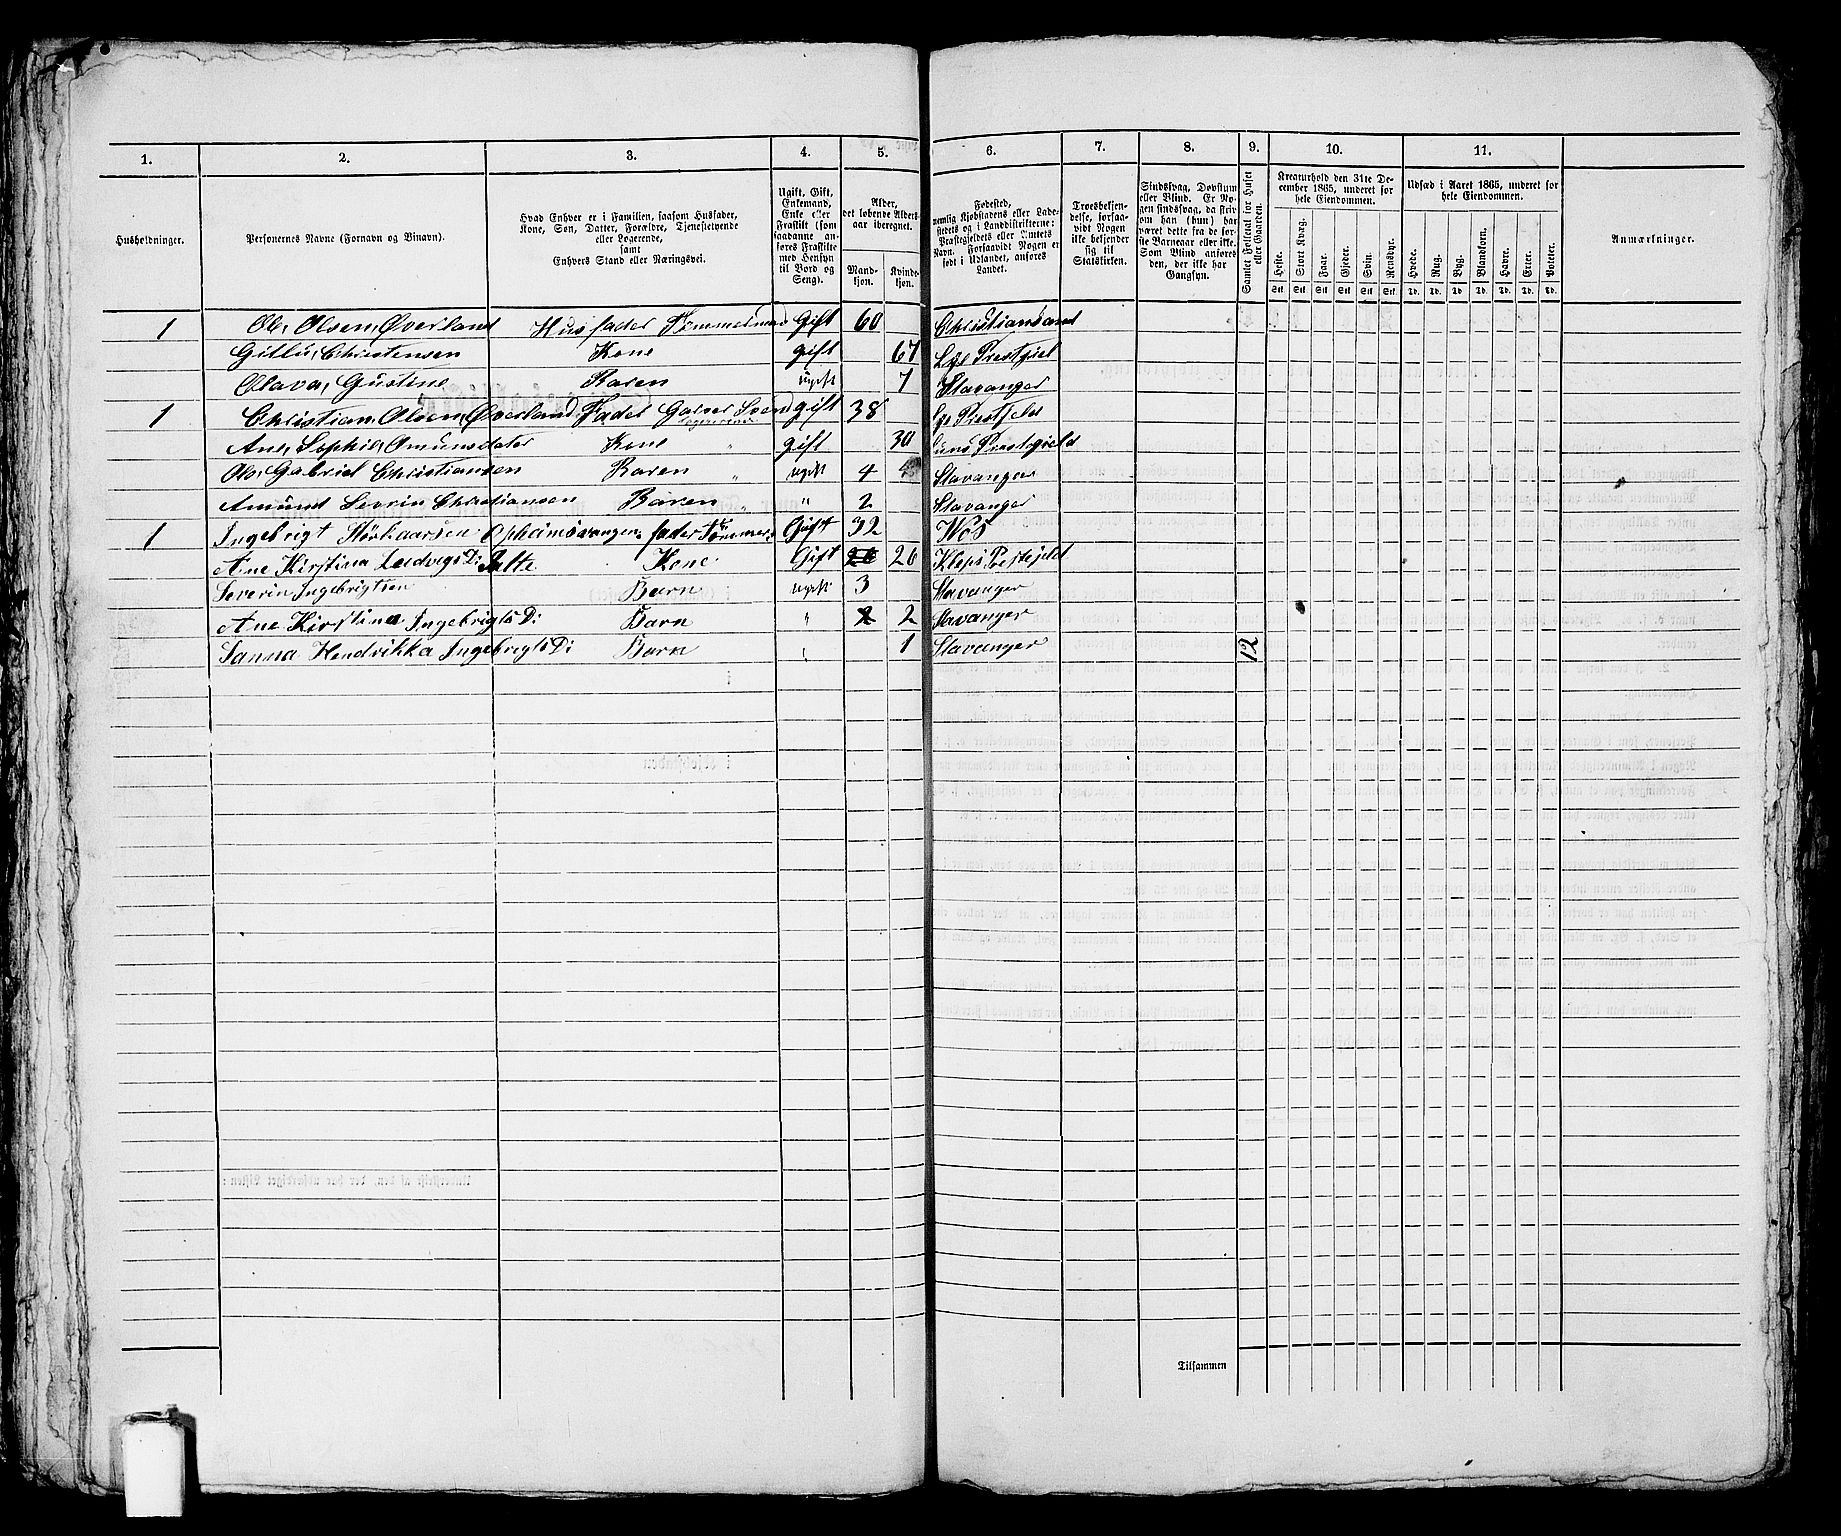 1. 2. 3. 4. 5. 6. 7. 8. 9. 10. 11.
Husholdninger.
Personernes Navne (Fornavn og Binavn).
Hvad Enhver er i Familien, saasom Husfader,
Kone, Søn, Datter, Forældre, Tjenestydende
eller Logerende,
samt
Enhvers Stand eller Næringsvei.
Ugift, Gift,
Enkemand,
Enke eller
Fraskilt (som
saadanne an-
føres Fraskilte
med Hensyn
til Bord og
Seng).
Alder,
det løbende Alders-
aar iberegnet.
Mand-
kjøn.
Kvinde-
kjøn.
Fødested,
nemlig Kjøbstadens eller Lade-
stedets og i Landdistrikterne:
Præstegjeldets eller Amtets
Navn. Forsaavidt Nogen er
født i Udlandet, anføres
Landet.
Troesbekjen-
delse, forsaa-
vidt Nogen
ikke bekjender
sig til
Statskirken.
Sindssvag, Døvstum
eller Blind. Er No-
gen sindssvag, da skri-
ves om han (hun) har
været dette fra de før-
ste Barneaar eller ikke.
Som Blind anføres
den, der ikke har
Gangsyn.
Samlet Folketal for Huset
eller Gaarden.
Kreaturhold den 31te De-
cember 1865, underet for
hele Eiendommen.
Heste. Stort Kvæg. Faar. Gjeder. Svin. Rensdyr.
Stk. Stk. Stk. Stk. Stk. Stk.
Udsæd i Aaret 1865, underet for
hele Eiendommen.
Hvede. Rug. Byg. Blandkorn. Havre. Erter. Poteter.
Td. Td. Td. Td. Td. Td. Td.
Anmærkninger.
1 Ole, Olsen, Øverland Husfader Tømmermand Gift 60 Christiansand
Christensen Kone gift 67 Prestgiel
Olava, Gustine Baren ugift 7 Stavanger
1 Christian, Olsen, Øverland, Fader Svend gift 38
Logerende
Ane, Sophie, Omunsdater Kone " gift 30 Prestegield
Ole, Gabriel Christiansen Baren " ugift 4 Stavanger
Amund Severin Christiansen Baren " " 2 Stavanger
1 Ingebrigt fader Gift 32 Wos
Ane Kirstina Ludvigs D: Kone Gift 26 26 Kleps Prestejeld
Severin Ingebrigtsen Barn ugift 3 Stavanger
Ane Kirstina Ingebrigts D: Barn " 2 2 Stavanger
Sanna Hendrikka Ingebrigts D: Barn " 1 Stavanger 12
Tilsammen